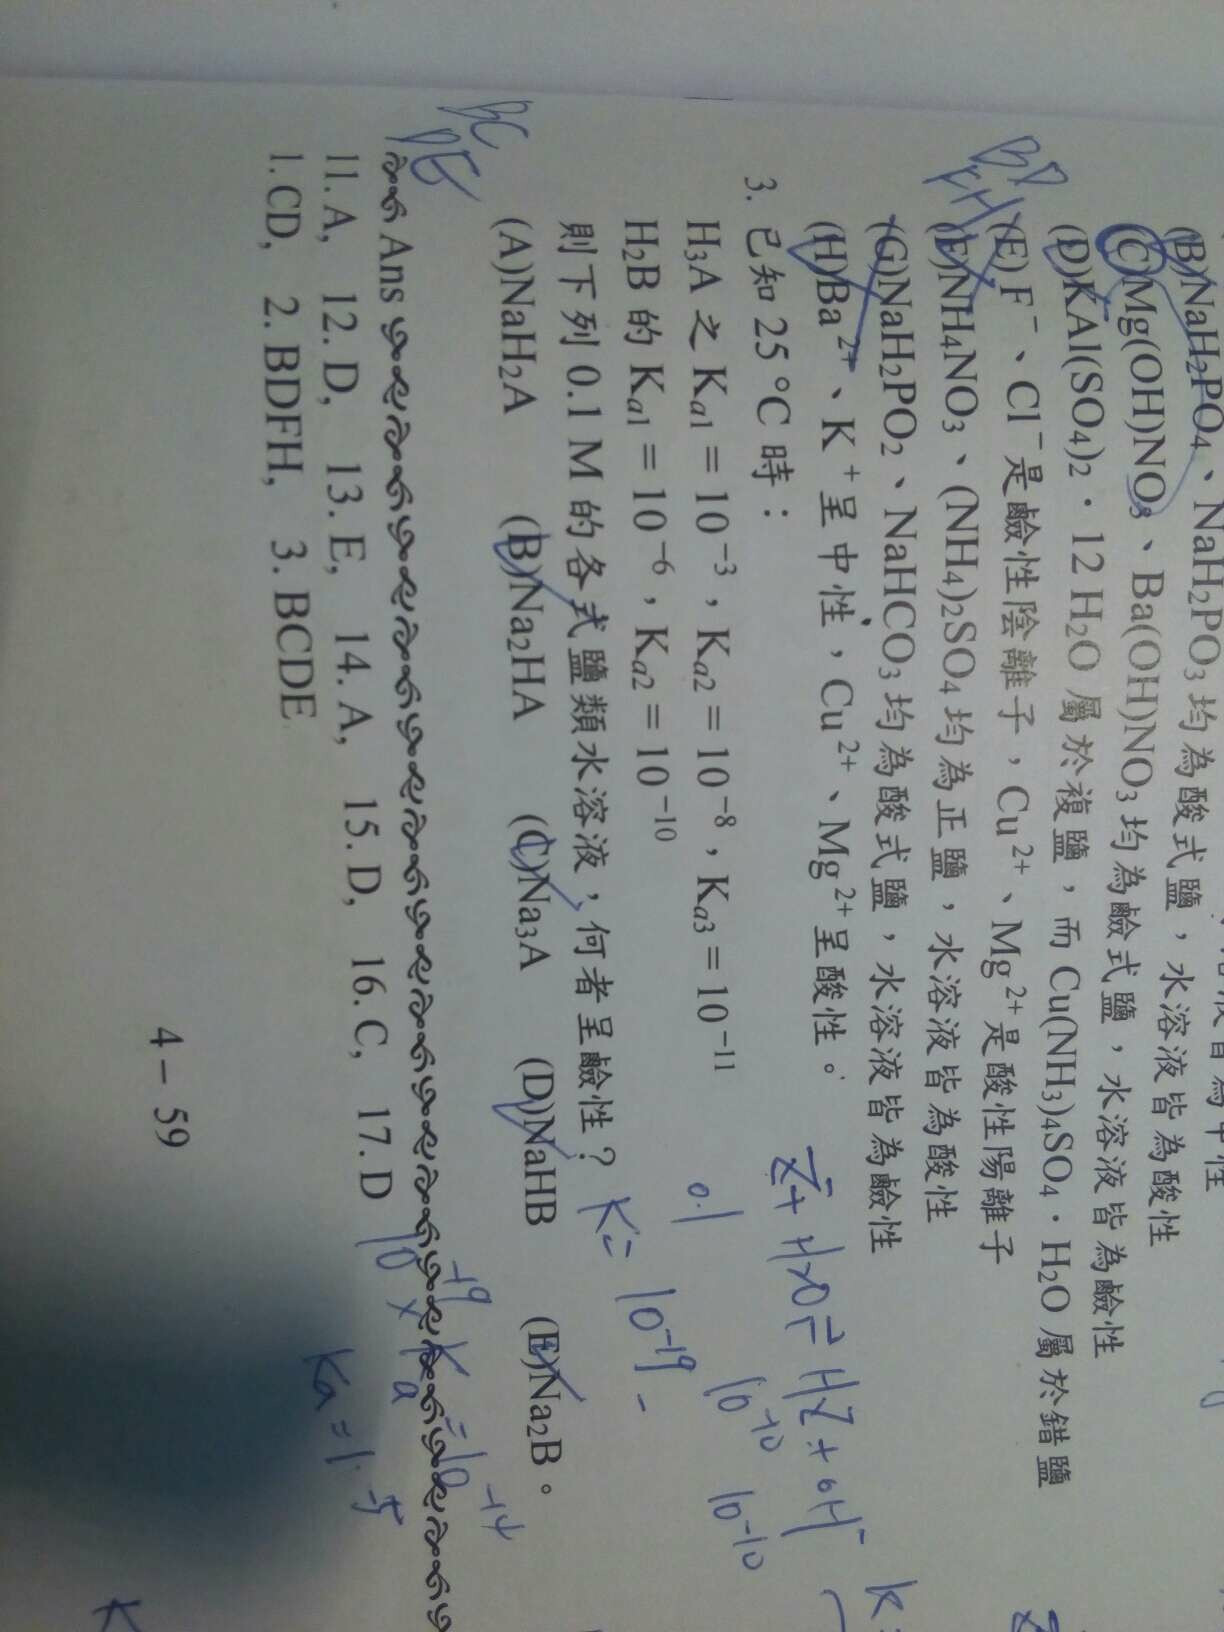 (B)NaH2PO4、NaH2PO3均為酸式鹽，水溶液皆為酸性
(C)Mg(OH)NO3、Ba(OH)NO3均為鹼式鹽，水溶液皆為鹼性
(D)KAl(SO4)2．12 H2O 屬於複鹽，而 Cu(NH3)4SO4．H2O 屬於錯鹽
(E) F⁻、Cl⁻是鹼性陰離子，Cu²⁺、Mg²⁺是酸性陽離子
(F)NH4NO3、(NH4)2SO4均為正鹽，水溶液皆為酸性
(G)NaH2PO2、NaHCO3均為酸式鹽，水溶液皆為鹼性
(H)Ba²⁺、K⁺呈中性，Cu²⁺、Mg²⁺呈酸性。
BD
FH
3. 已知 25 ℃ 時：
H3A 之 Ka1 = 10⁻³，Ka2 = 10⁻⁸，Ka3 = 10⁻¹¹
H2B 的 Ka1 = 10⁻⁶，Ka2 = 10⁻¹⁰
則下列 0.1 M 的各式鹽類水溶液，何者呈鹼性？
(A)NaH2A (B)Na2HA (C)Na3A (D)NaHB (E)Na2B。
BC
DE
0.1
10⁻¹⁰ 10⁻¹⁰
K= 10⁻¹⁹
Ans
11. A, 12. D, 13. E, 14. A, 15. D, 16. C, 17. D
1. CD, 2. BDFH, 3. BCDE
4－59